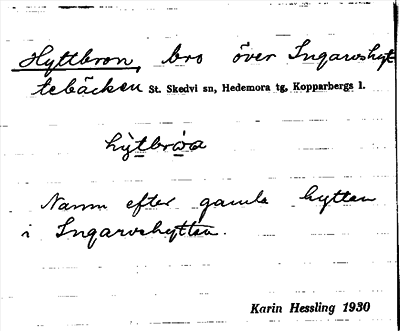 Hyttbron, bro över Ingarvshyt-
tebäcken St. Skedvi sn, Hedemora tg, Kopparbergs l.
Namn efter gamla hyttan
i Ingarvshyttan.
Karin Hessling 1930